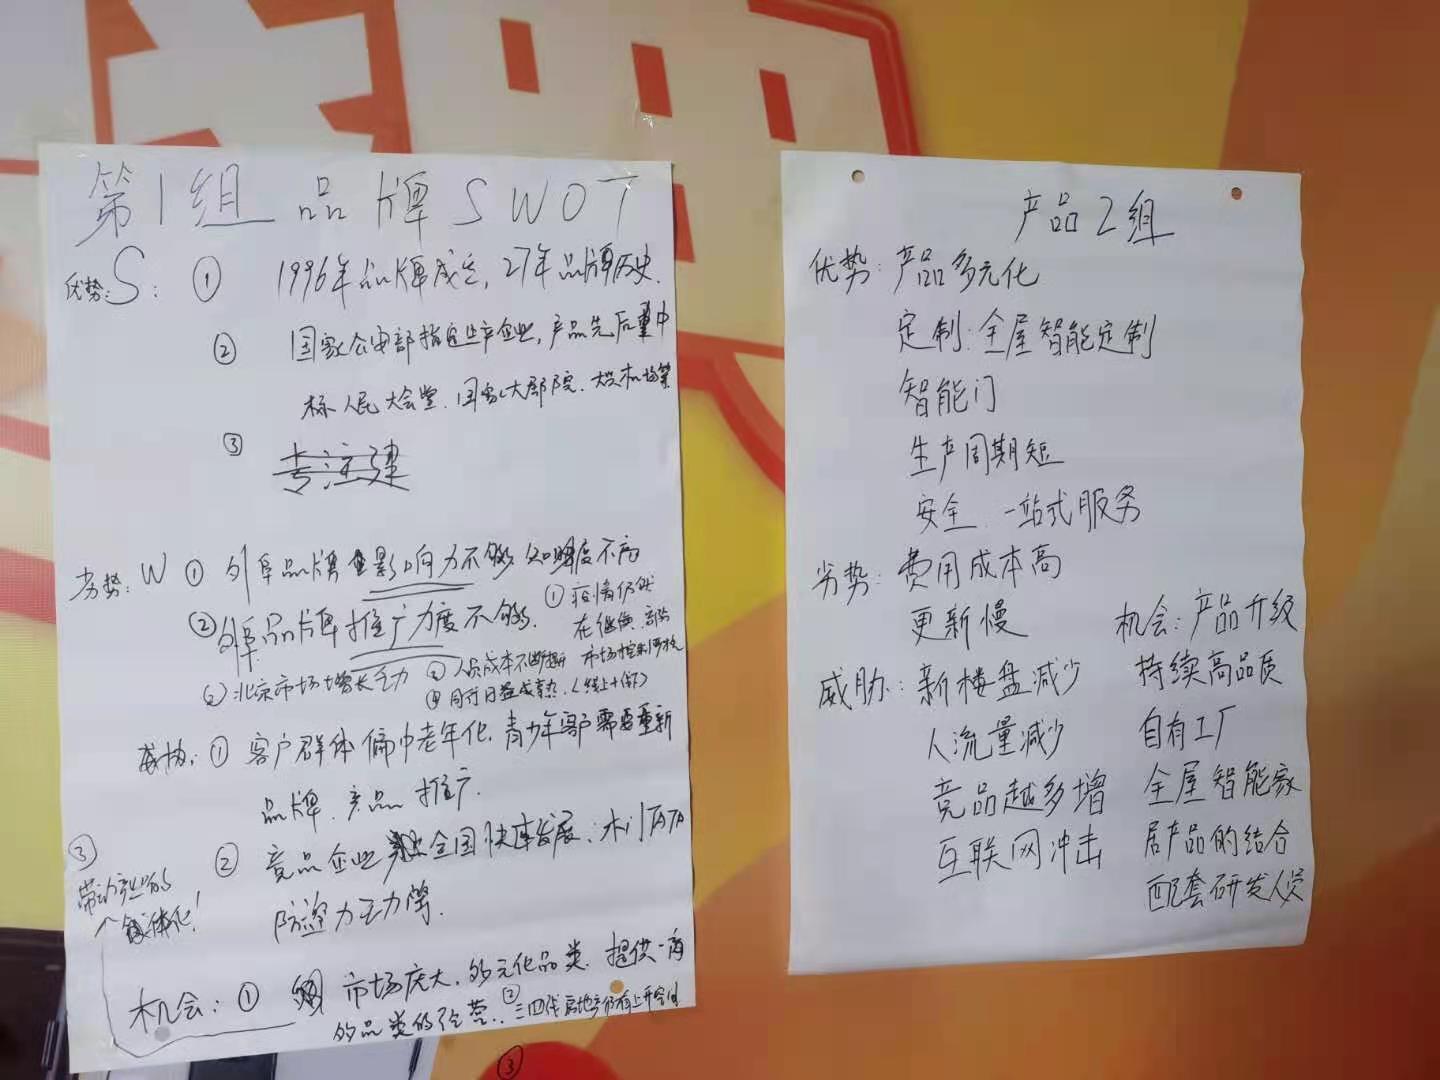 第1组 品牌SWOT
优势:S: ① 1996年品牌成立,27年品牌历史.
② 国家公安部指定生产企业,产品先后重中
标人民大会堂、国家大剧院、大兴机场等
③ 专注建
劣势: W ① 外阜品牌影响力不够 知名度不高
② 外阜品牌推广力度不够.
① 疫情仍然
在继续,
⑥ 北京市场增长乏力
② 人员成本不断
④ 同行日益成熟.(线上+线下)
威协: ① 客户群体偏中老年化,青少年客户需要重新
品牌、产品推广.
② 竞品企业全国快速发展:木门
③
机会: ① 市场庞大,多元化品类,提供一商
多品类的经营. ②
③
产品2组
优势: 产品多元化
定制:全屋智能定制
智能门
生产周期短
安全 一站式服务
劣势: 费用成本高
更新慢
威胁: 新楼盘减少
人流量减少
竞品越多增
互联网冲击
机会: 产品升级
持续高品质
自有工厂
全屋智能家
居产品的结合
匹配套研发人员